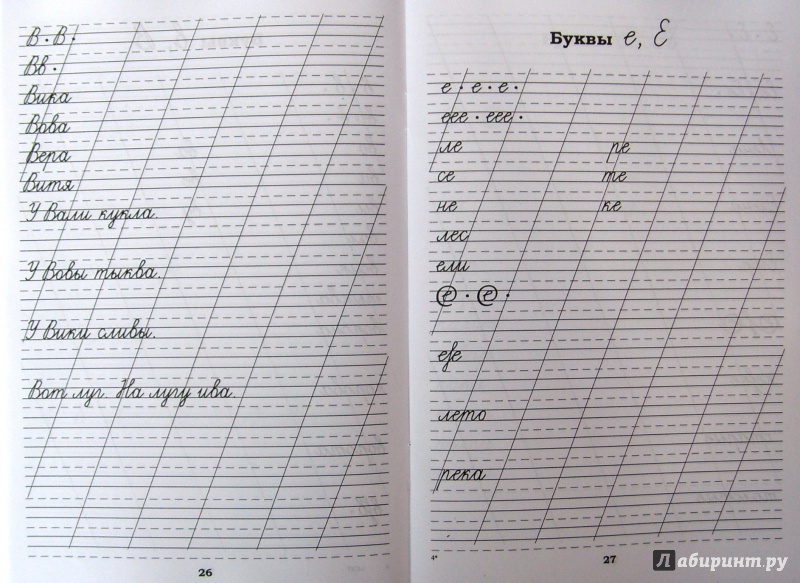 В · В ·
Вв ·
Вика
Вова
Вера
Витя
У Вали кукла.
У Вовы тыква.
У Вики сливы.
Вот луг. На лугу ива.
26
Буквы е, Е
е · е · е ·
еее · еее ·
ле ре
се те
не ке
лес
ели
е · е ·
лето
река
4*
27
Лабиринт.ру